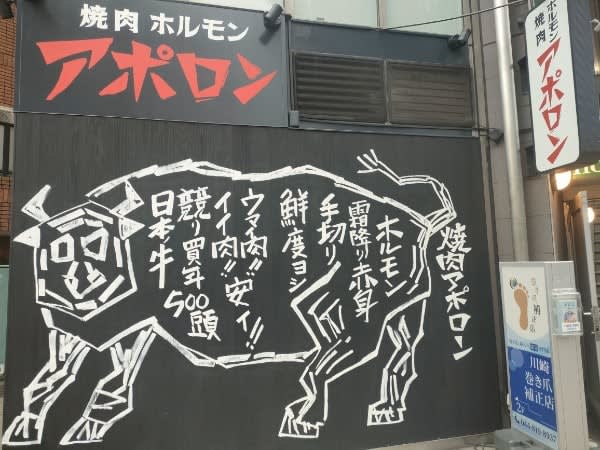 焼肉 ホルモン
アポロン
焼肉 ホルモン
アポロン
焼肉アポロン
ホルモン
霜降り赤身
手切り
鮮度ヨシ
ウマイ肉!!安イ!!
イイ肉!!
競り買年500頭
日本牛
川崎
巻き爪
補正店
2F
044-819-8937